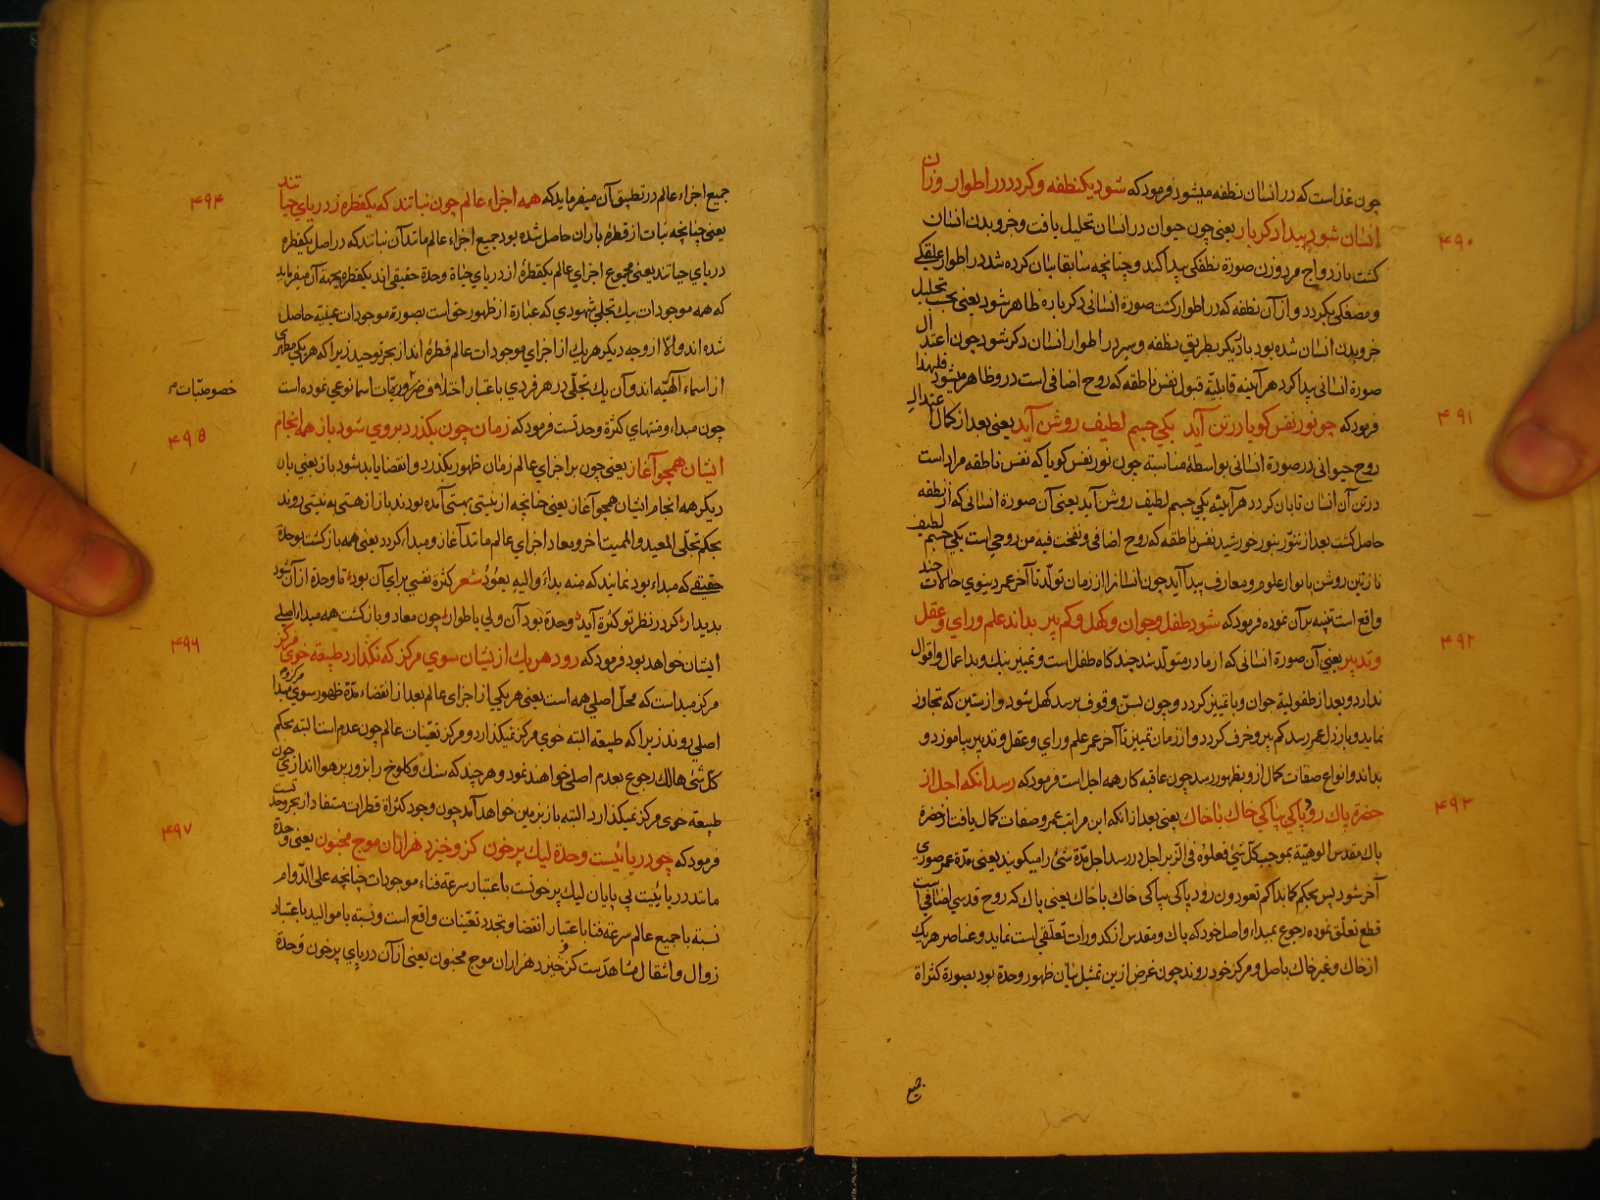 چون غذاست که در انسان نطفه میشود فرمود که شود یکنطفه و کردد در اطوار وزان
انسان شود پیدا دکربار یعنی چون حیوان در انسان تحلیل یافت و جزو بدن انسان
۴۹۰
کشت باز دواج مرد و زن صورة نطفکی پیدا کند و چنانچه سابقا بیان کرده شد در اطوار علقکی
و مضغکی بکردد و از آن نطفه که در اطوار کشت صورة انسانی دکرباره ظاهر شود یعنی بحسب تحلیل
جزو بدن انسان شده بود باردیکر بطریق نطفه و سیر در اطوار انسان دکر شود چون اعتدال
صورة انسانی پیدا کرد هر آینه قابلیّة قبول نفس ناطقه که روح اضافی است در و ظاهر میشود فلهذا
فرمود که چو نور نفس کویا در تن آید یکی جسم لطیف روشن آید یعنی بعد از کمال اعتدال
۴۹۱
روح حیوانی در صورة انسانی بواسطۀ مناسبة چون نور نفس کویا که نفس ناطقه مراد است
در تن آن انسان تابان کردد هر آینه یکی جسم لطیف روشن آید یعنی آن صورة انسانی که از نطفه
حاصل کشت بعد از تنوّر بنور خورشید نفس ناطقه که روح اضافی و نفخت فیه من روحی است یکی جسم لطیف
نازنین روشن بانوار علوم و معارف پیدا آید چون انسانرا از زمان تولّد تا آخر عمر دنیوی حالات چند
واقع است تنبیه بر آن نموده فرمود که شود طفل و جوان و کهل و کم پیر بداند علم و رای و عقل
و تدبیر یعنی آن صورة انسانی که از مادر متولّد شد چند کاه طفل است و تمییز نیک و بد اعمال و اقوال
۴۹۲
ندارد و بعد از طفولیة جوان و با تمییز کردد و چون بسنّ وقوف برسد کهل شود و از ستین که تجاوز
نماید و بارذل عمر رسد کم پیر و خرف کردد و از زمان تمییز تا آخر عمر علم و رای و عقل و تدبیر بیاموزد و
بداند و انواع صفات کمال ازو بظهور رسد چون عاقبة کار همه اجل است فرمود که رسد انکه اجل از
حضرة پاک رود پاکی بپاکی خاک با خاک یعنی بعد از انکه این مراتب عمر و صفات کمال یافت از حضرة
۴۹۳
پاک مقدس الوهیّة بموجب کلّ شئ فعلوه فی الزّبر اجل در رسد اجل مدّة شئ را میکویند یعنی مدّة عمر صوری
آخر شود پس بحکم کما بداکم تعودون رود پاکی بپاکی خاک با خاک یعنی پاک که روح قدسی اضافیست
قطع تعلّق نموده رجوع بمبداء و اصل خود که پاک و مقدس از کدورات تعلّقی است نماید و عناصر هر یک
از خاک و غیر خاک باصل و مرکز خود روند چون غرض ازین تمثیل بیان ظهور وحدة بود بصورة کثراة
جمیع
جمیع اجزاء عالم در تطبیق آن میفرماید که همه اجزاء عالم چون نباتند که یکقطره ز دریای حیاتند
۴۹۴
یعنی چنانچه نبات از قطرۀ باران حاصل شده بود جمیع اجزاء عالم مانند آن نباتند که در اصل یکقطره
دریای حیاتند یعنی مجموع اجزای عالم یکقطرۀ از دریای حیاة وحدة حقیقی اند یکقطره بجهة آن میفرماید
که همه موجودات بیک تجلّی شهودی که عبارة از ظهور حق است بصورة موجودات عینیّه حاصل
شده اند والّا از وجه دیکر هر یک از اجزای موجودات عالم قطرۀ اند از بحر توحید زیرا که هر یکی مظهری
از اسماء الٓهیّه اند و آن یک تجلّی در هر فردی باعتبار اختلاف خصوصیّات اسما نوعی نموده است
خصوصیّات
چون مبداء و منتهای کثرة وحدتست فرمود که زمان چون بکذرد بروی شود باز همه انجام
ایشان همچو آغاز یعنی چون بر اجزای عالم زمان ظهور بکذرد و انقضا یابد شود باز یعنی بار
۴۹۵
دیکر همه انجام ایشان همچو آغاز یعنی چنانچه از نیستی بهستی آمده بودند باز از هستی به نیستی روند
بحکم تجلّی المعید و الممیت اخر و معاد اجزای عالم مانند آغاز و مبداء کردد یعنی همه بازکشت بوحدة
حقیقی که مبداء بود نمایند که منه بداء والیه یعود شعر کثرة نفسی برای آن بود تا وحدة از آن شود
بدیدار کر در نظر تو کثرة آید وحدة بود آن ولی باطوار چون معاد و بازکشت همه مبداء اصلی
ایشان خواهد بود فرمود که رود هر یک ازیشان سوی مرکز که نکذارد طبیعة خوی مرکز
۴۹۶
مرکز مبداست که محلّ اصلی همه است یعنی هر یکی از اجزای عالم بعد از انقضاء مدّة ظهور سوی مبدا
اصلی روند زیرا که طبیعة البته خوی مرکز نمیکذارد و مرکز تعیّنات عالم چون عدم است البته بحکم
کلّ شئ هالک رجوع بعدم اصلی خواهند نمود و هر چند که سنک و کلوخ را بزور بر هوا اندازی چون
طبیعة خوی مرکز نمیکذارد البته باز بزمین خواهد آمد چون وجود کثراة قطرات مستفاد از بحر وحدتست
فرمود که چو دریائیست وحدة لیک پر خون کزو خیزد هزاران موج مجنون یعنی وحدة
۴۹۷
مانند دریائیست بی پایان لیک پر خونست باعتبار سرعة فناء موجودات چنانچه علی الدّوام
نسبة با جمیع عالم سرعة فنا باعتبار انقضا و تجدد تعیّنات واقع است و نسبة با موالید باعتبار
زوال و انتقال مشاهدست کزو خیزد هزاران موج مجنون یعنی از آن دریای پر خون وحدة